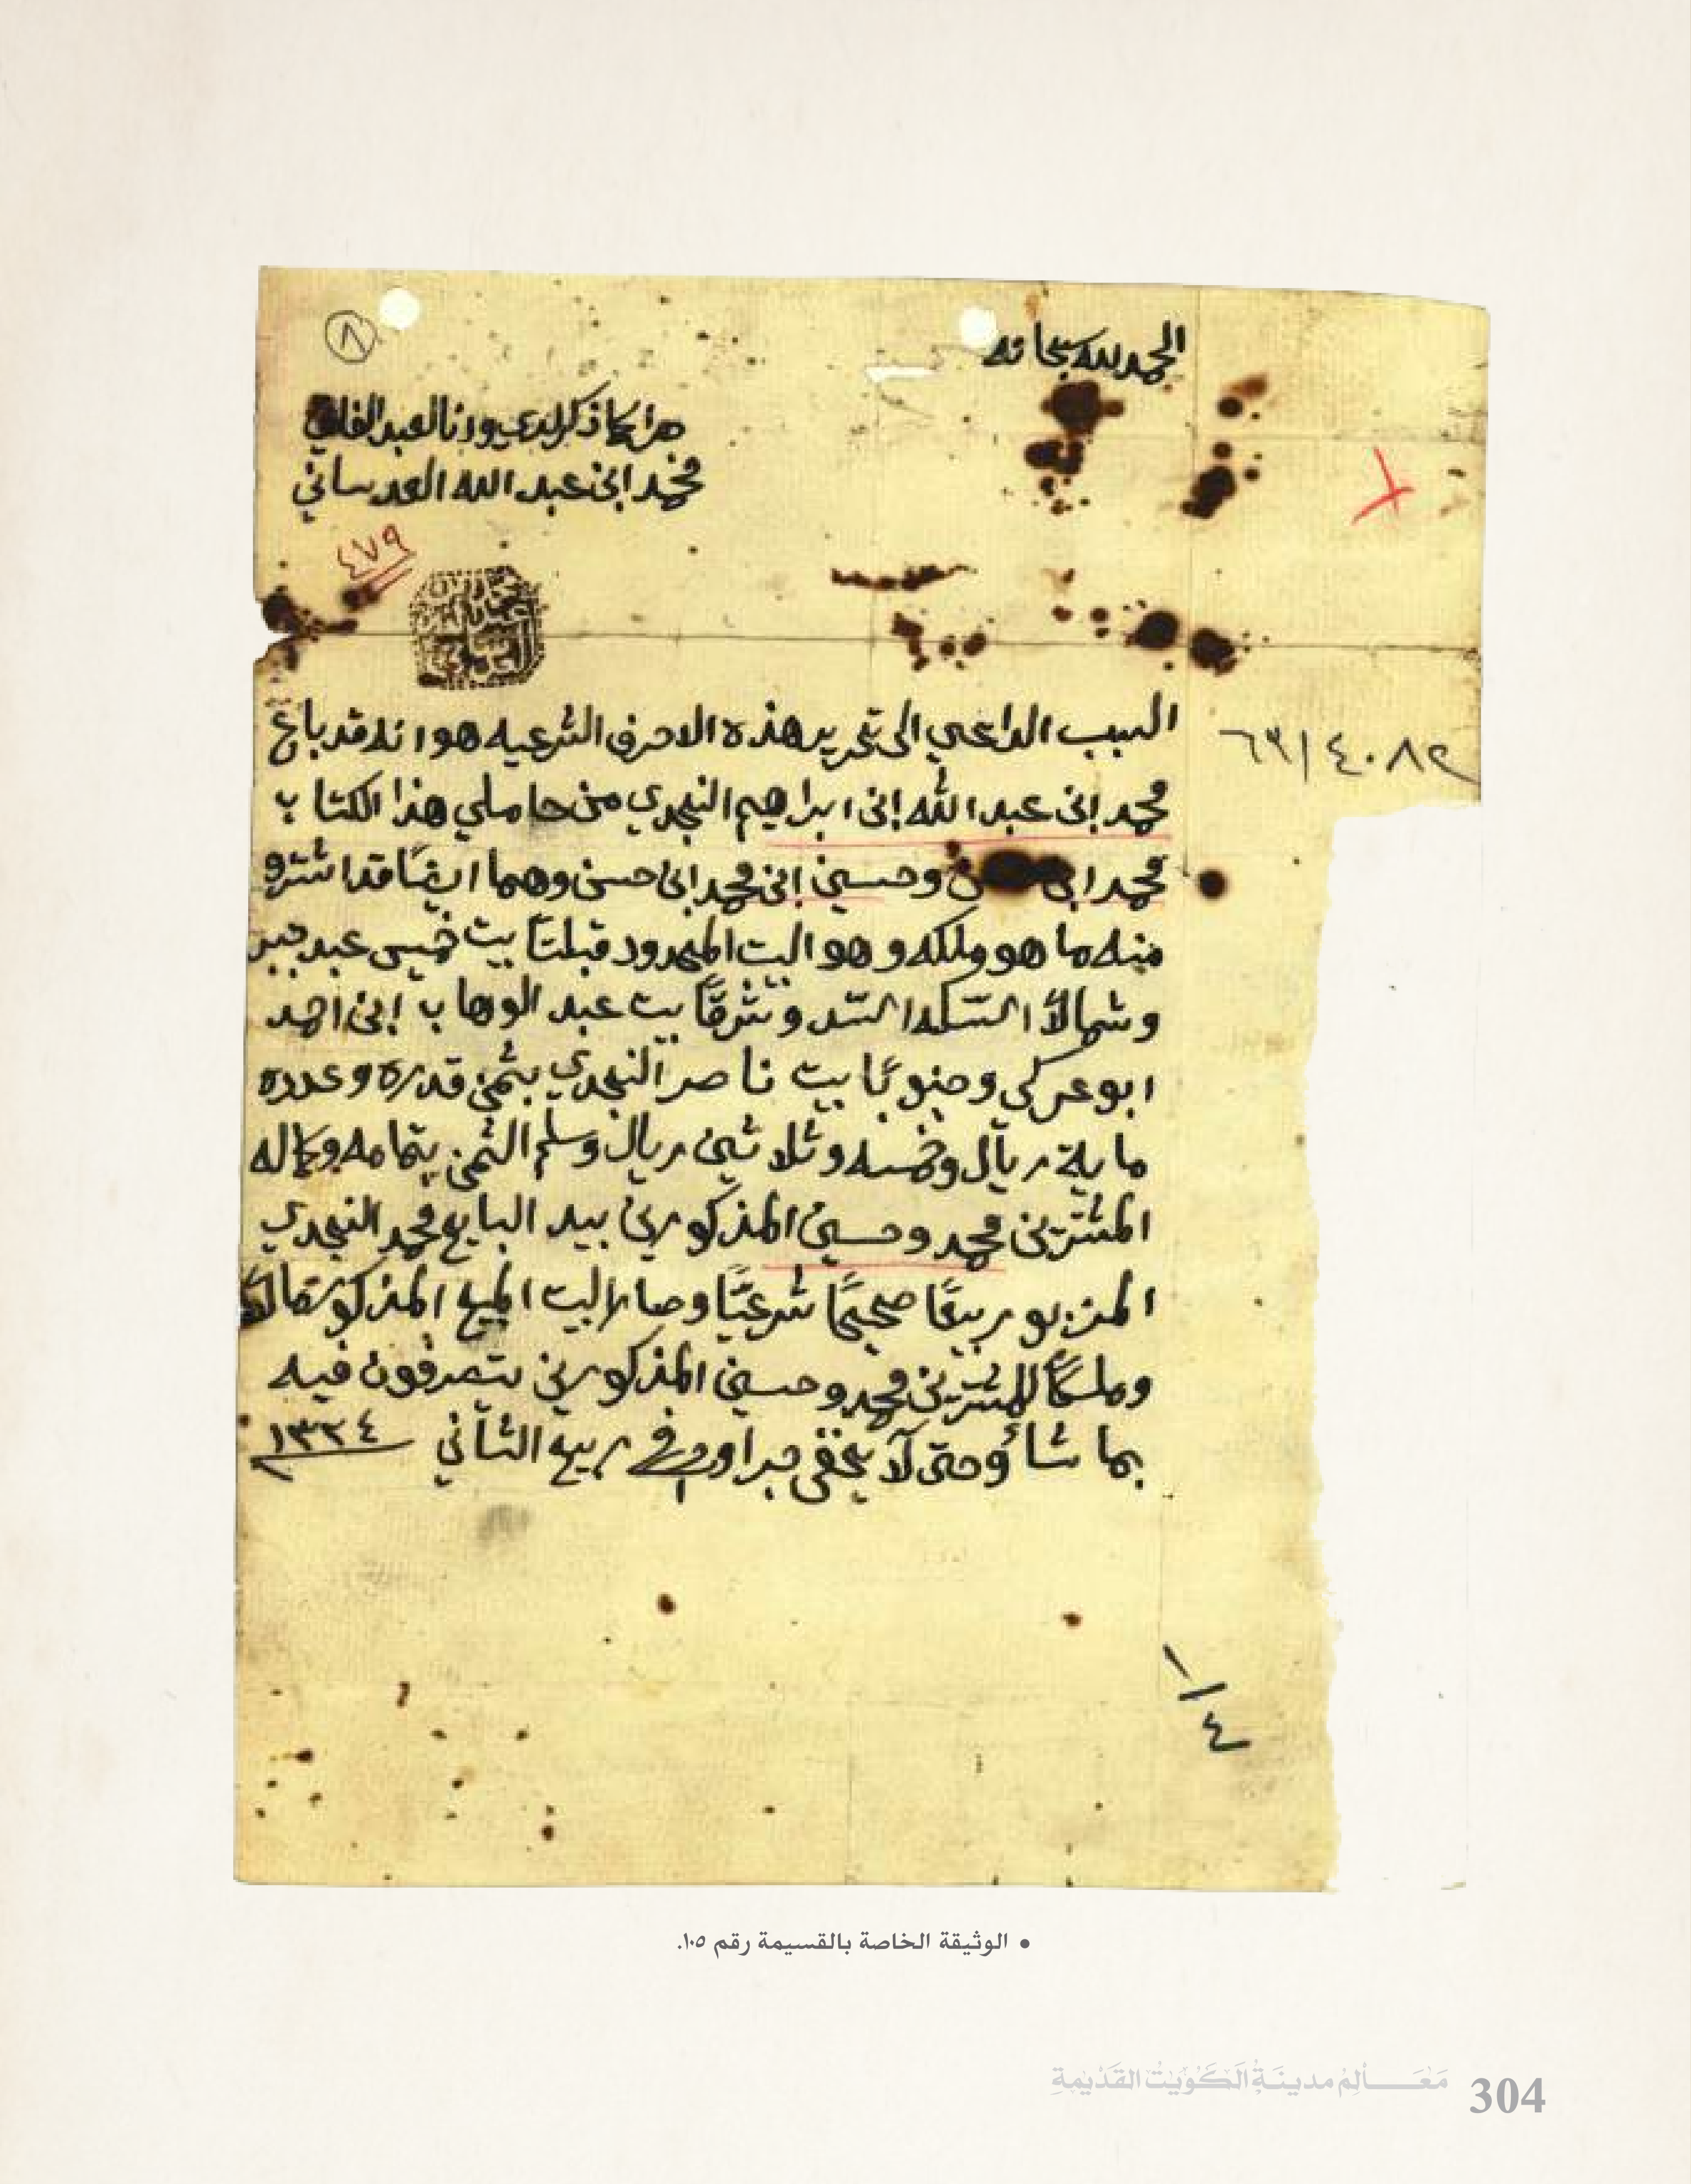 الحمد لله سبحانه
٨
جرا كما ذكر لدي وانا العبد الفاني
محمد ابن عبد الله العدساني
٤٧٩
محمد بن عبد الله العدساني
السبب الداعي الى تحرير هذه الاحرف الشرعيه هو انه قد باع
٤٠٨٢/٦٣
محمد ابن عبد الله ابن ابراهيم النجدي من حاملي هذا الكتاب
محمد ابن وحسين ابن محمد ابن حسن وهما ايضًا قد اشترو
منه ما هو ملكه وهو البيت المحدود قبلتًا بيت خميس عبد
وشمالًا السكه السد وشرقًا بيت عبد الوهاب ابن احمد
ابو عركي وجنوبًا بيت ناصر النجدي بثمن قدره وعدده
ماية ريال وخمسه وثلاثين ريال وسلم الثمن بتمامه وكماله
المشترين محمد وحسين المذكورين بيد البايع محمد النجدي
المزبور بيعًا صحيحًا شرعيًا وصار البيت المبيع المذكور مالًا
وملكًا للمشترين محمد وحسين المذكورين يتصرفون فيه
بما شاؤ وحتى لا يخفى جرا وحرر في ربيع الثاني ١٣٣٤
١/٤
• الوثيقة الخاصة بالقسيمة رقم ١٠٥.
مَعَالِمُ مدينَةِ الكُوَيْت القَدْيمَةِ 304